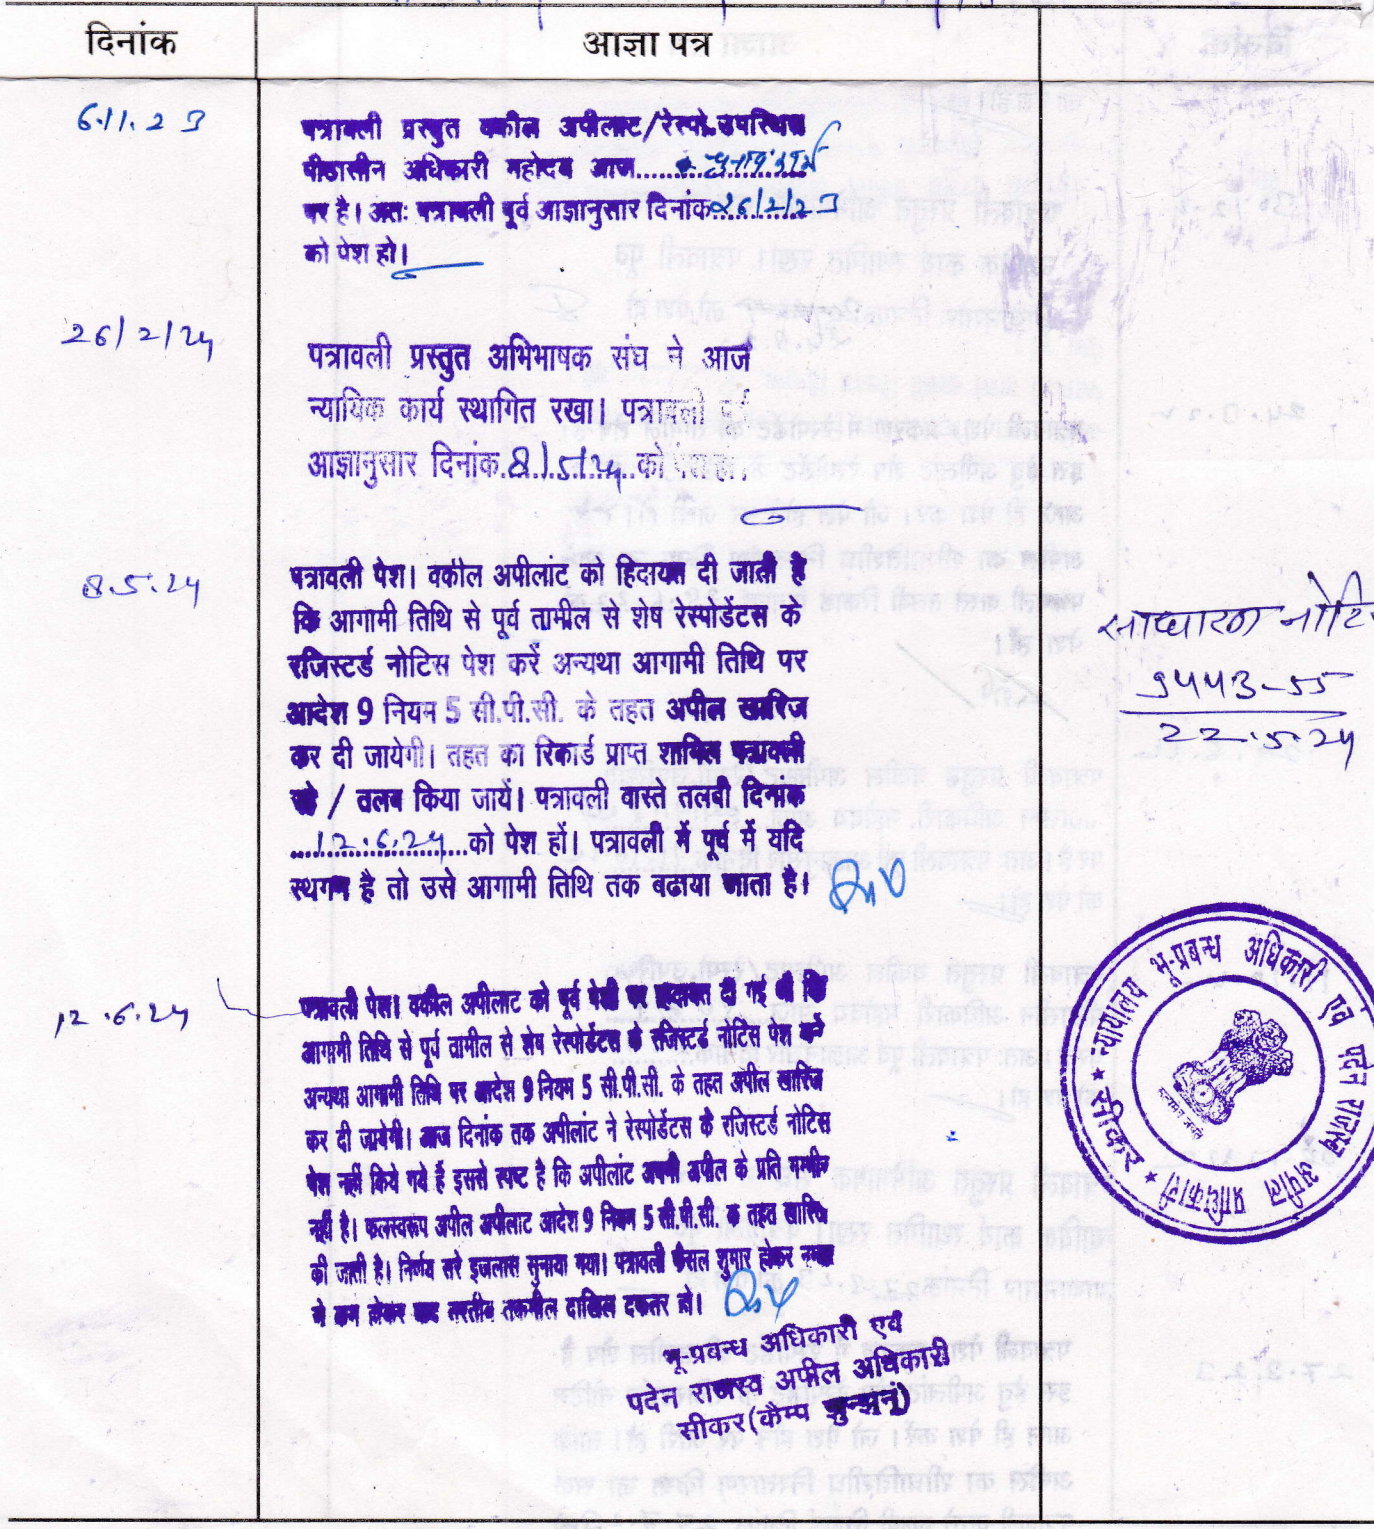 दिनांक
आज्ञा पत्र
6.11.23
पत्रावली प्रस्तुत वकील अपीलाट/रेस्पो.उपस्थित
पीठासीन अधिकारी महोदय आज..........
पर है। अतः पत्रावली पूर्व आज्ञानुसार दिनांक 26/2/23
को पेश हो।
26/2/24
पत्रावली प्रस्तुत अभिभाषक संघ ने आज
न्यायिक कार्य स्थागित रखा। पत्रावली पूर्व
आज्ञानुसार दिनांक 8/5/24 को
8.5.24
पत्रावली पेश। वकील अपीलांट को हिदायत दी जाती है
कि आगामी तिथि से पूर्व तामील से शेष रेस्पोडेंटस के
रजिस्टर्ड नोटिस पेश करें अन्यथा आगामी तिथि पर
आदेश 9 नियम 5 सी.पी.सी. के तहत अपील खारिज
कर दी जायेगी। तहत का रिकार्ड प्राप्त शामिल पत्रावली
रहे / तलब किया जायें। पत्रावली वास्ते तलबी दिनांक
12.6.24 को पेश हों। पत्रावली में पूर्व में यदि
स्थगन है तो उसे आगामी तिथि तक बढाया जाता है।
साधारण नोटिस
9443-55
22.5.24
12.6.24
पत्रावली पेश। वकील अपीलाट को पूर्व पेशी पर हिदायत दी गई थी कि
आगामी तिथि से पूर्व तामील से शेष रेस्पोर्डेटस के रजिस्टर्ड नोटिस पेश करे
अन्यथा आगामी तिथि पर आदेश 9 नियम 5 सी.पी.सी. के तहत अपील खारिज
कर दी जायेगी। आज दिनांक तक अपीलांट ने रेस्पोर्डेटस के रजिस्टर्ड नोटिस
पेश नहीं किये गये है इससे स्पष्ट है कि अपीलांट अपनी अपील के प्रति गम्भीर
नहीं है। फलस्वरूप अपील अपीलाट आदेश 9 नियम 5 सी.पी.सी. के तहत खारिज
की जाती है। निर्णय सरे इजलास सुनाया गया। पत्रावली फैसल शुमार होकर नम्बर
से कम होकर बाद तरतीब तकमील दाखिल दफ्तर हो।
भू-प्रबन्ध अधिकारी एवं
पदेन राजस्व अपील अधिकारी
सीकर (कैम्प झुन्झनूं)
न्यायालय भू-प्रबन्ध अधिकारी एवं पदेन राजस्व अपील प्राधिकारी
* सीकर *